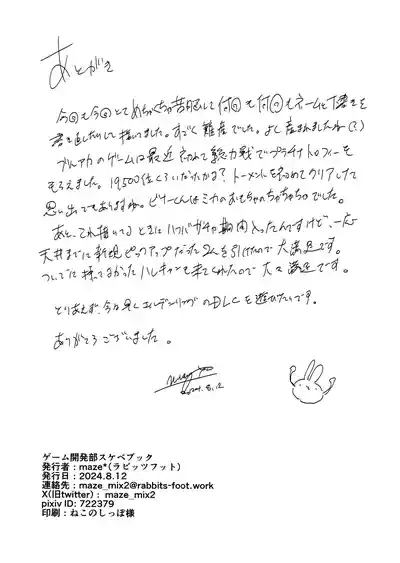 あとがき
今回も今回とてめちゃくちゃ苦戦して何回も何回もネームと下書きを
書き直したりして描いてました。すごく難産でした。よく産まれましたね(?)
ブルーアカのゲームは最近初めて総力戦でプラチナトロフィーを
もらえました。19,500位くらいだったかな?トーメントを初めてクリアしてて
思い出でもありますね。ビナーくんはミカのおもちゃのちゃちゃちゃでした。
あと、これ描いてるときにハフバガチャ期間入ったんですけど、一応
天井までに新規ピックアップだった2人を引けたので大満足です。
ついでに持ってなかったハレキャンも来てくれたので大々満足です。
とりあえず、今は早くエルデンリングのDLCを遊びたいです。
ありがとうございました。
maze
2024.8.12
ゲーム開発部スケベブック
発行者：maze*(ラビッツフット)
発行日：2024.8.12
連絡先：maze_mix2@rabbits-foot.work
X(旧twitter)：maze_mix2
pixiv ID: 722379
印刷：ねこのしっぽ様